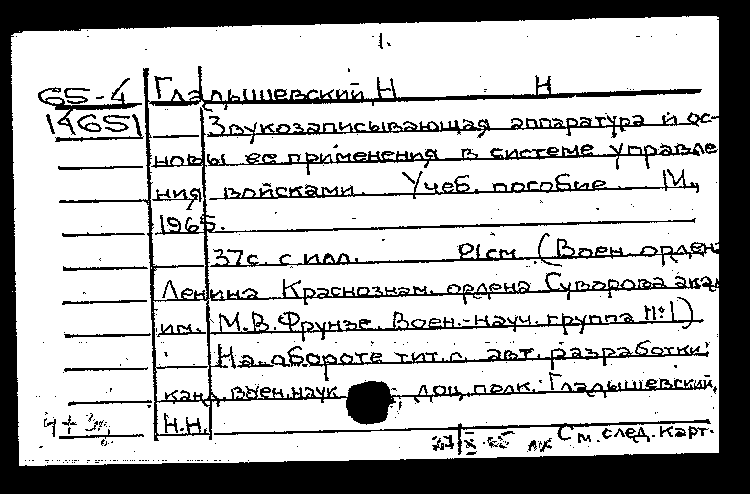 1.
65-4 Гладышевский, Н Н
14651 Звукозаписывающая аппаратура и ос-
новы ее применения в системе управле
ния войсками. Учеб. пособие М.,
1965.
37с. с илл. 21см. (Воен. ордена
Ленина Краснознам. ордена Суворова акад
им. М.В.Фрунзе. Воен.-науч. группа №1)
На обороте тит. л. авт. разработки:
канд. воен. наук, доц. полк. Гладышевский,
Н.Н.
4+3п
27/X-65 См. след. карт.